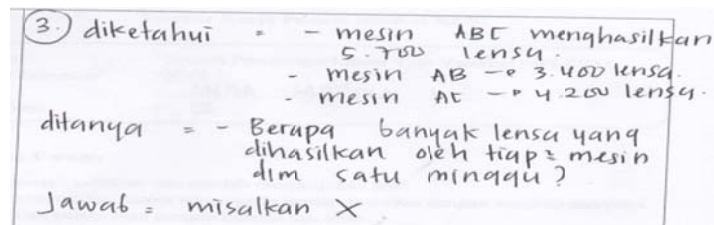 3.) diketahui = - mesin ABC menghasilkan
5.700 lensa.
- mesin AB → 3.400 lensa.
- mesin AC → 4.200 lensa.
ditanya = - Berapa banyak lensa yang
dihasilkan oleh tiap² mesin
dlm satu minggu?
Jawab = misalkan X